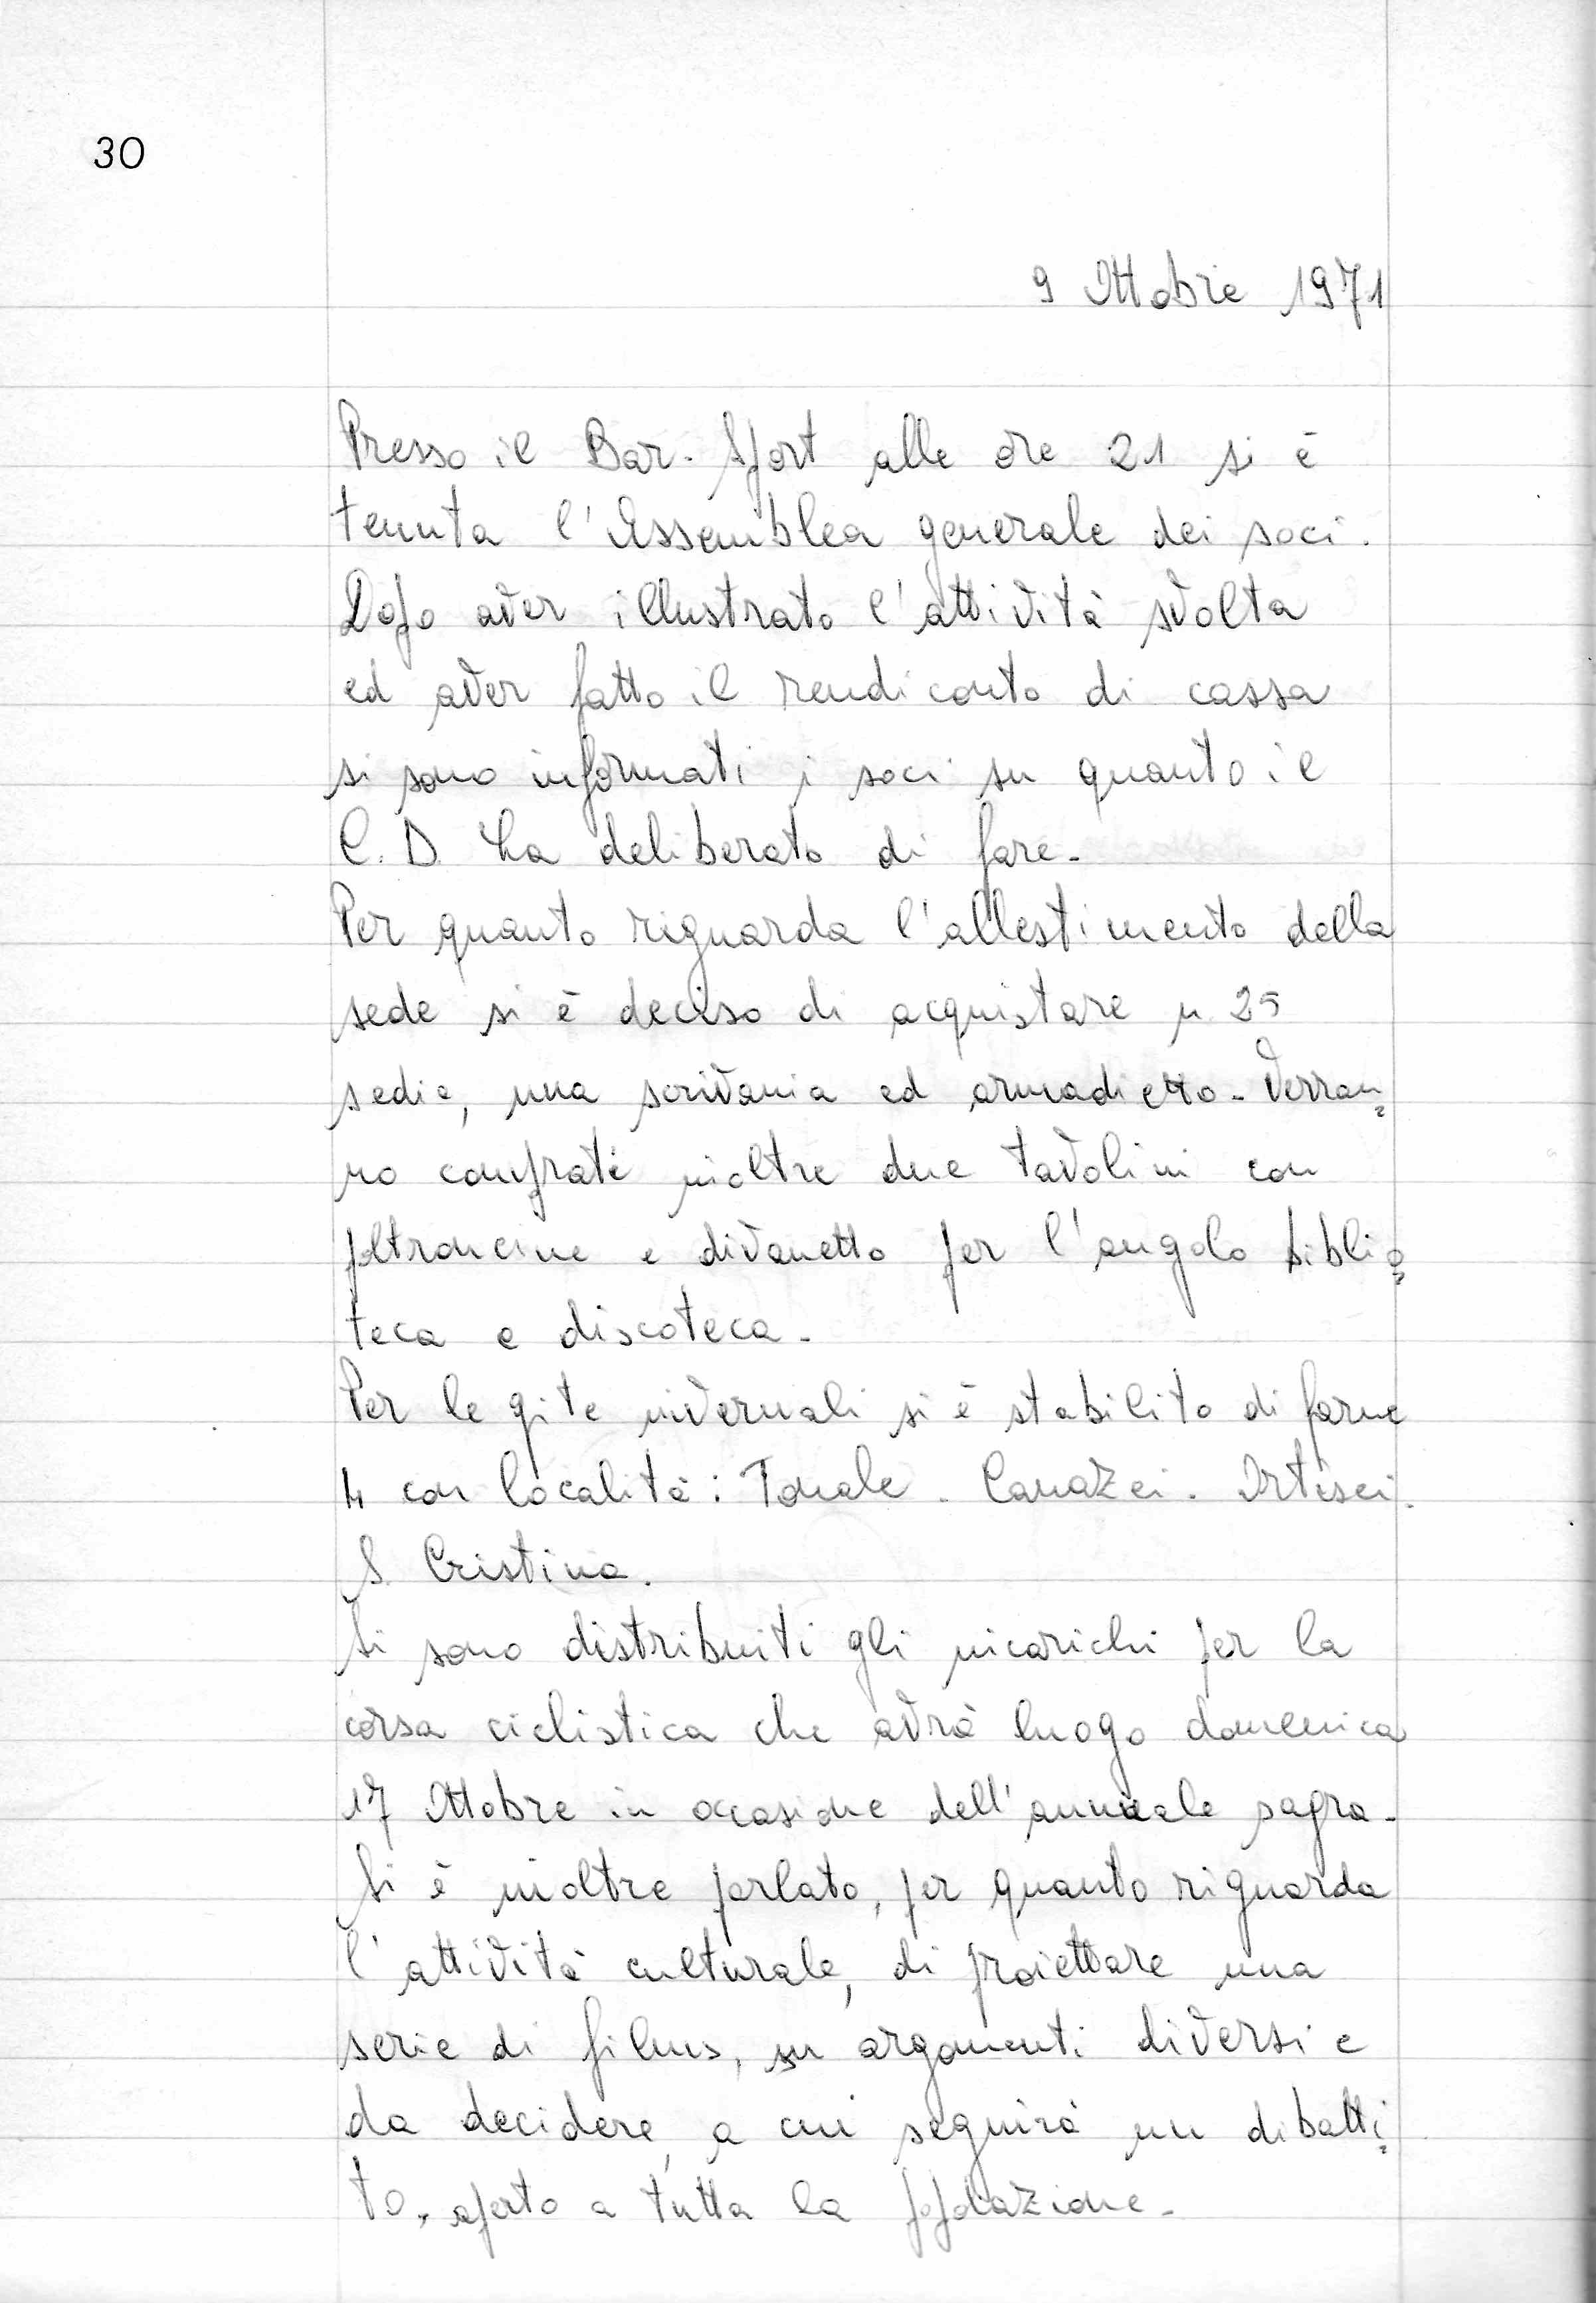 30
9 Ottobre 1971
Presso il Bar. Sport alle ore 21 si è
tenuta l'Assemblea generale dei soci.
Dopo aver illustrato l'attività svolta
ed aver fatto il rendiconto di cassa
si sono informati i soci su quanto il
C.D. ha deliberato di fare.
Per quanto riguarda l'allestimento della
sede si è deciso di acquistare n. 25
sedie, una scrivania ed armadietto. Verran=
no comprati inoltre due tavolini con
poltroncine e divanetto per l'angolo biblio=
teca e discoteca.
Per le gite invernali si è stabilito di farne
4 con località: Tonale. Canazei. Ortisei.
S. Cristina.
Si sono distribuiti gli incarichi per la
corsa ciclistica che avrà luogo domenica
17 Ottobre in occasione dell'annuale sagra.
Si è inoltre parlato, per quanto riguarda
l'attività culturale, di proiettare una
serie di films, su argomenti diversi e
da decidere, a cui seguirà un dibatti=
to, aperto a tutta la popolazione.